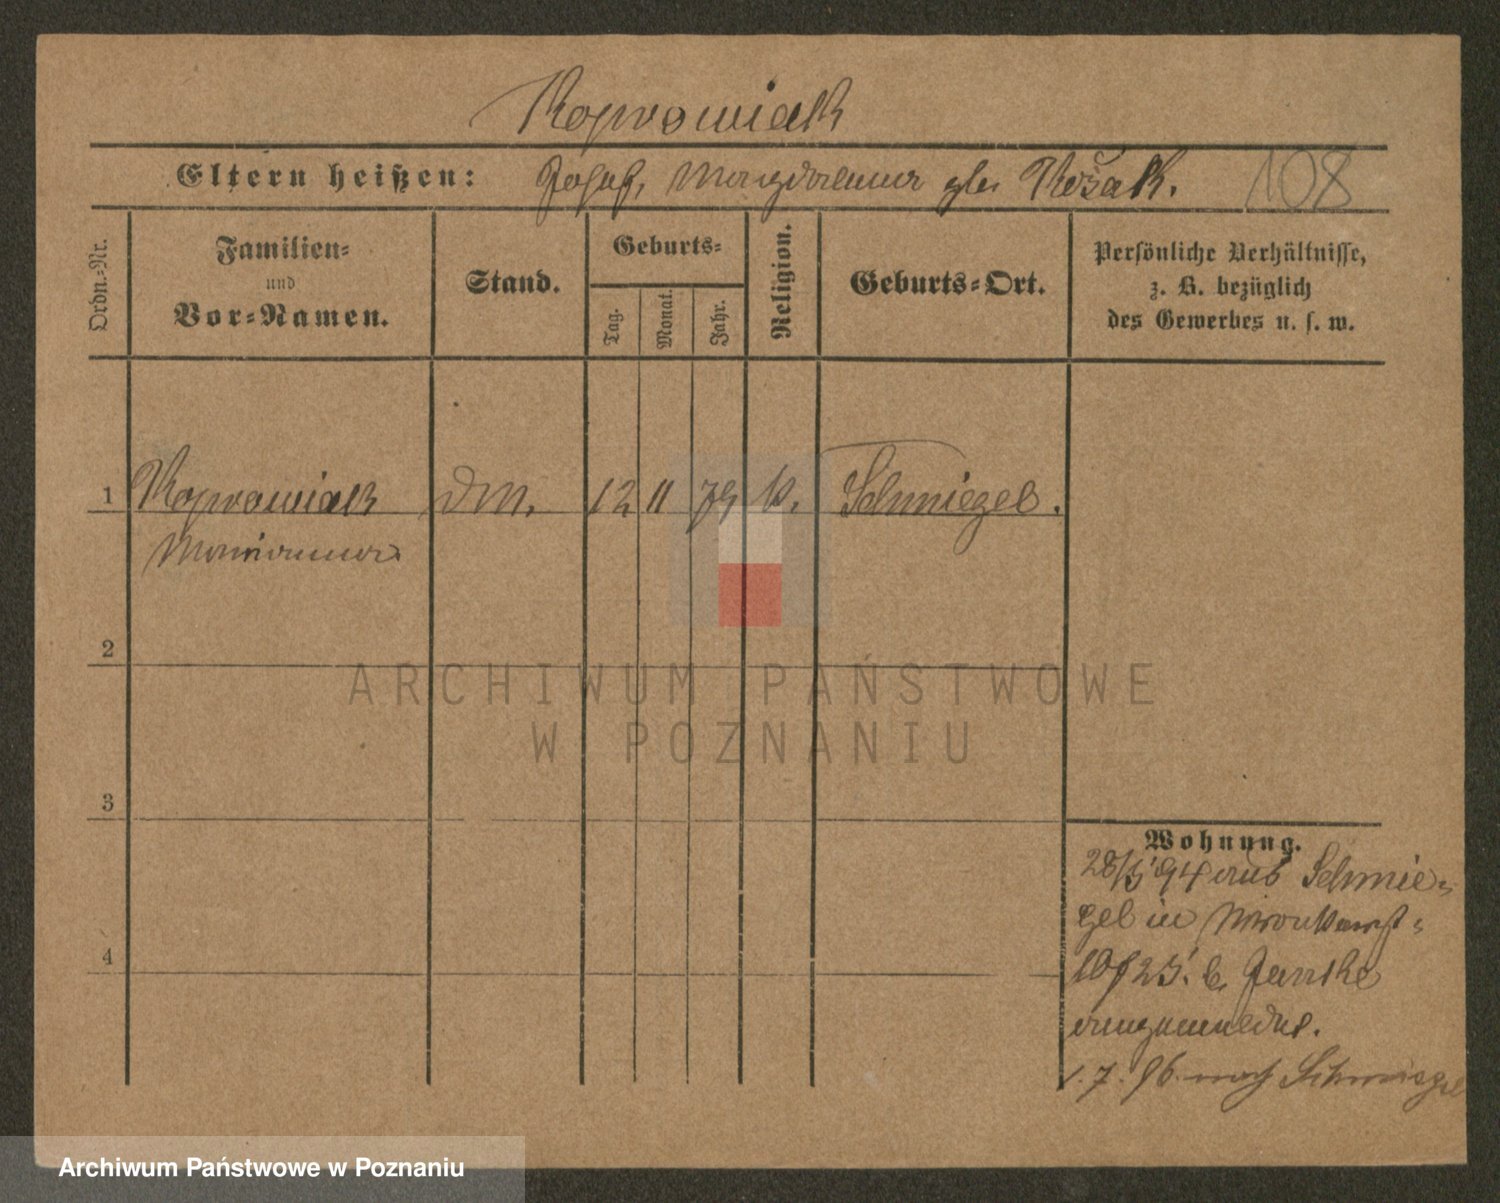 Koprowiak
Eltern heißen: Josef, Magdalena geb. Kožak. 108
Ordn.-Nr.
Familien-
und
Vor-Namen.
Stand.
Geburts-
Tag.
Monat.
Jahr.
Religion.
Geburts-Ort.
Persönliche Verhältnisse,
z. B. bezüglich
des Gewerbes u. s. w.
1 Koprowiak DM. 12 11 79 k. Schmiegel.
Marianna
2
3
4
Wohnung.
28/5 94 aus Schmie-
gel in
b. Janske
angemeldet.
1. 7. 96. nach Schmiegel
ARCHIWUM PAŃSTWOWE
W POZNANIU
Archiwum Państwowe w Poznaniu